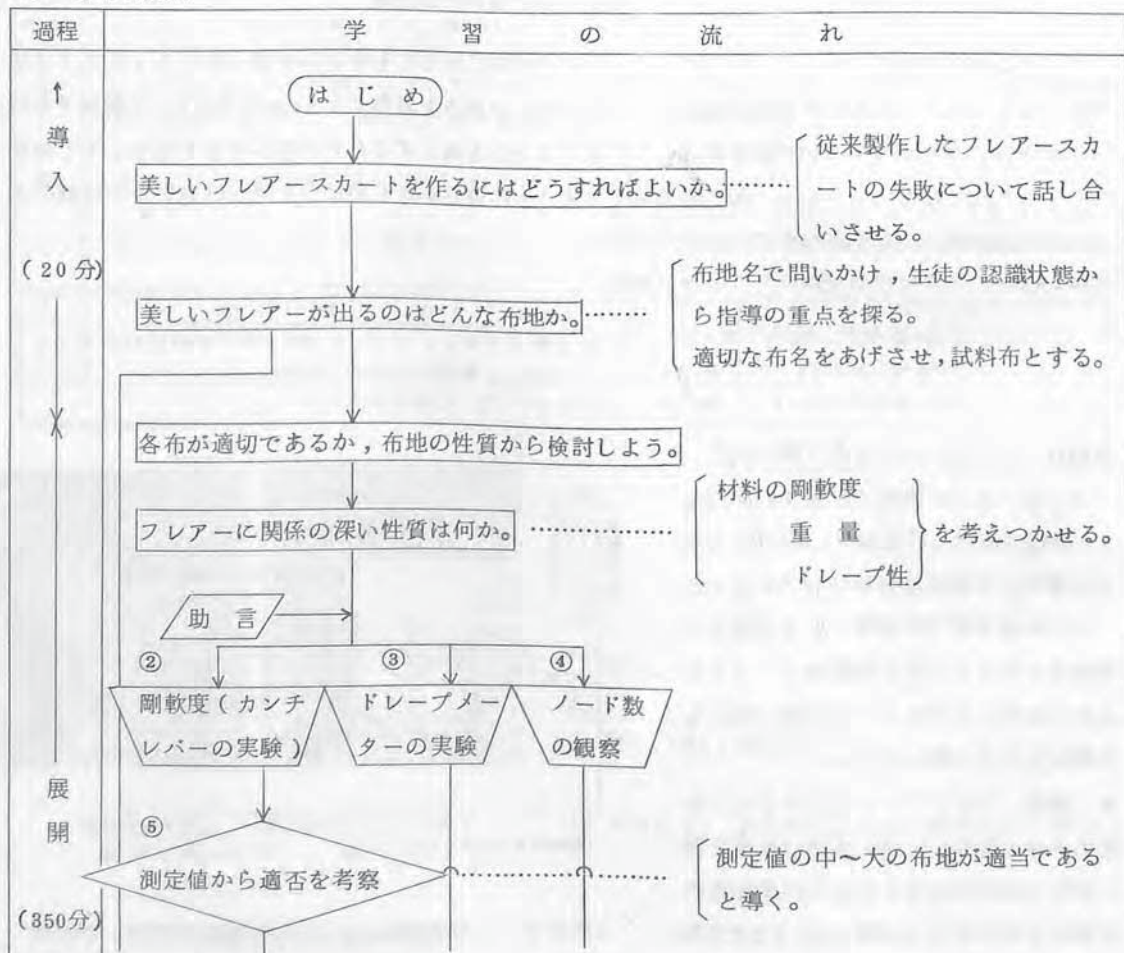 過程
学習の流れ
↑
導
入
(20分)
はじめ
美しいフレアースカートを作るにはどうすればよいか。………
従来製作したフレアースカ
ートの失敗について話し合
いさせる。
美しいフレアーが出るのはどんな布地か。………
布地名で問いかけ,生徒の認識状態か
ら指導の重点を探る。
適切な布名をあげさせ,試料布とする。
各布が適切であるか,布地の性質から検討しよう。
フレアーに関係の深い性質は何か。………………
材料の剛軟度
重量
ドレープ性
を考えつかせる。
助言
②
剛軟度(カンチ
レバーの実験)
③
ドレープメー
ターの実験
④
ノード数
の観察
展
開
(350分)
⑤
測定値から適否を考察
測定値の中~大の布地が適当である
と導く。